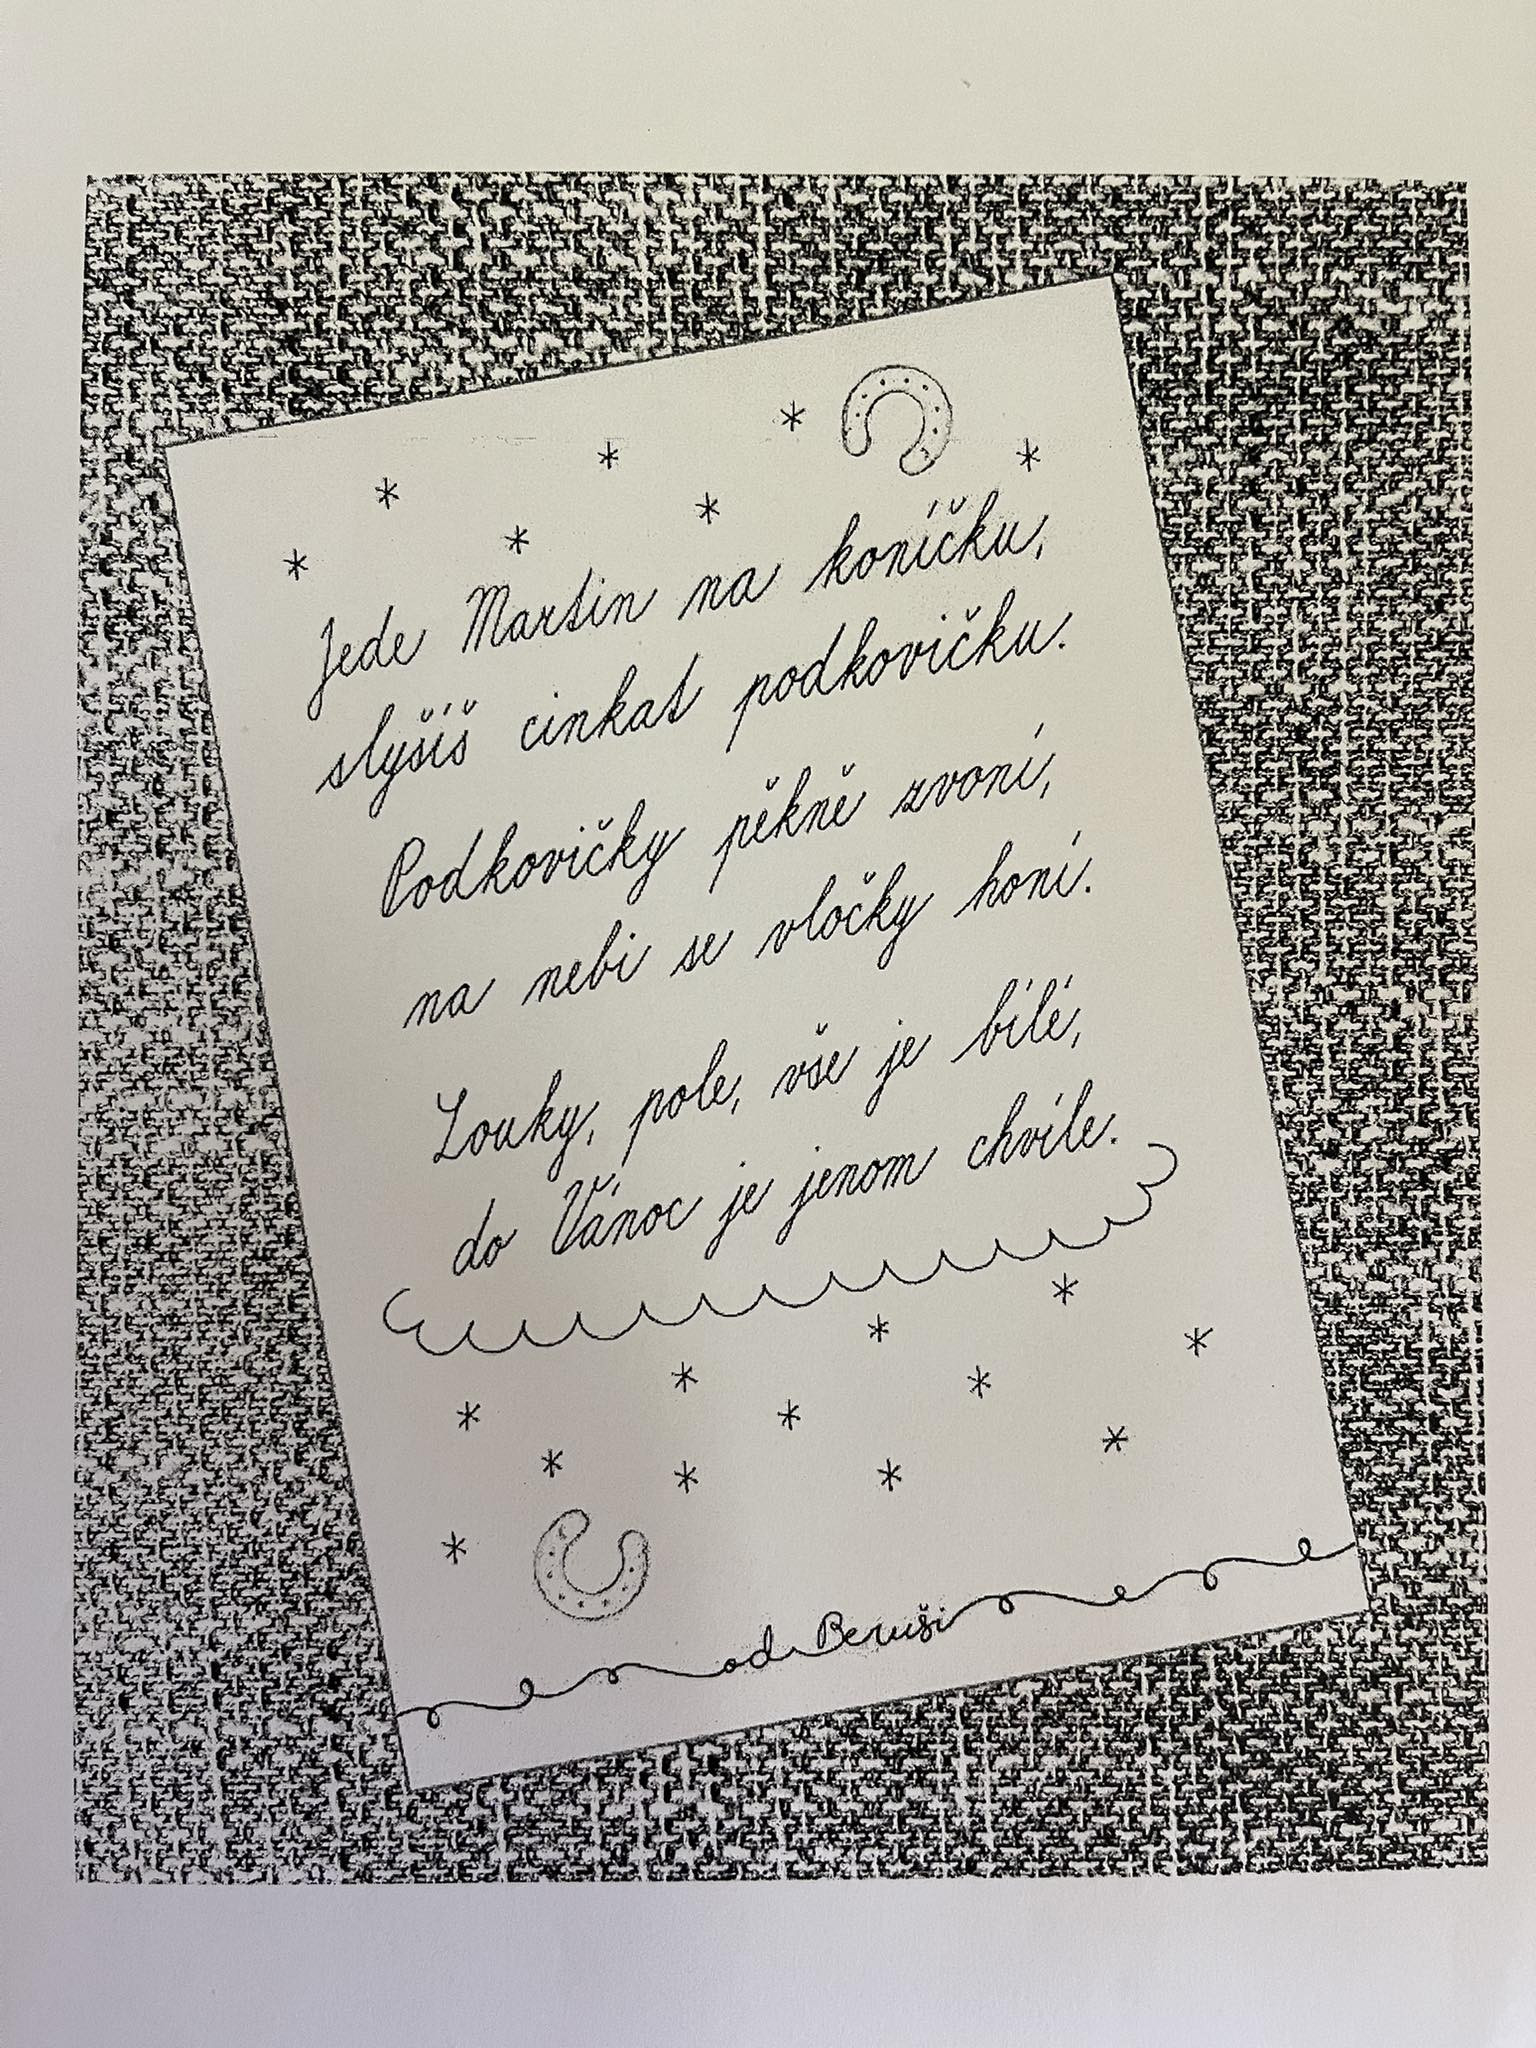 Jede Martin na koníčku,
slyšíš cinkat podkovičku.
Podkovičky pěkně zvoní,
na nebi se vločky honí.
Louky, pole, vše je bílé,
do Vánoc je jenom chvíle.
od Beruši